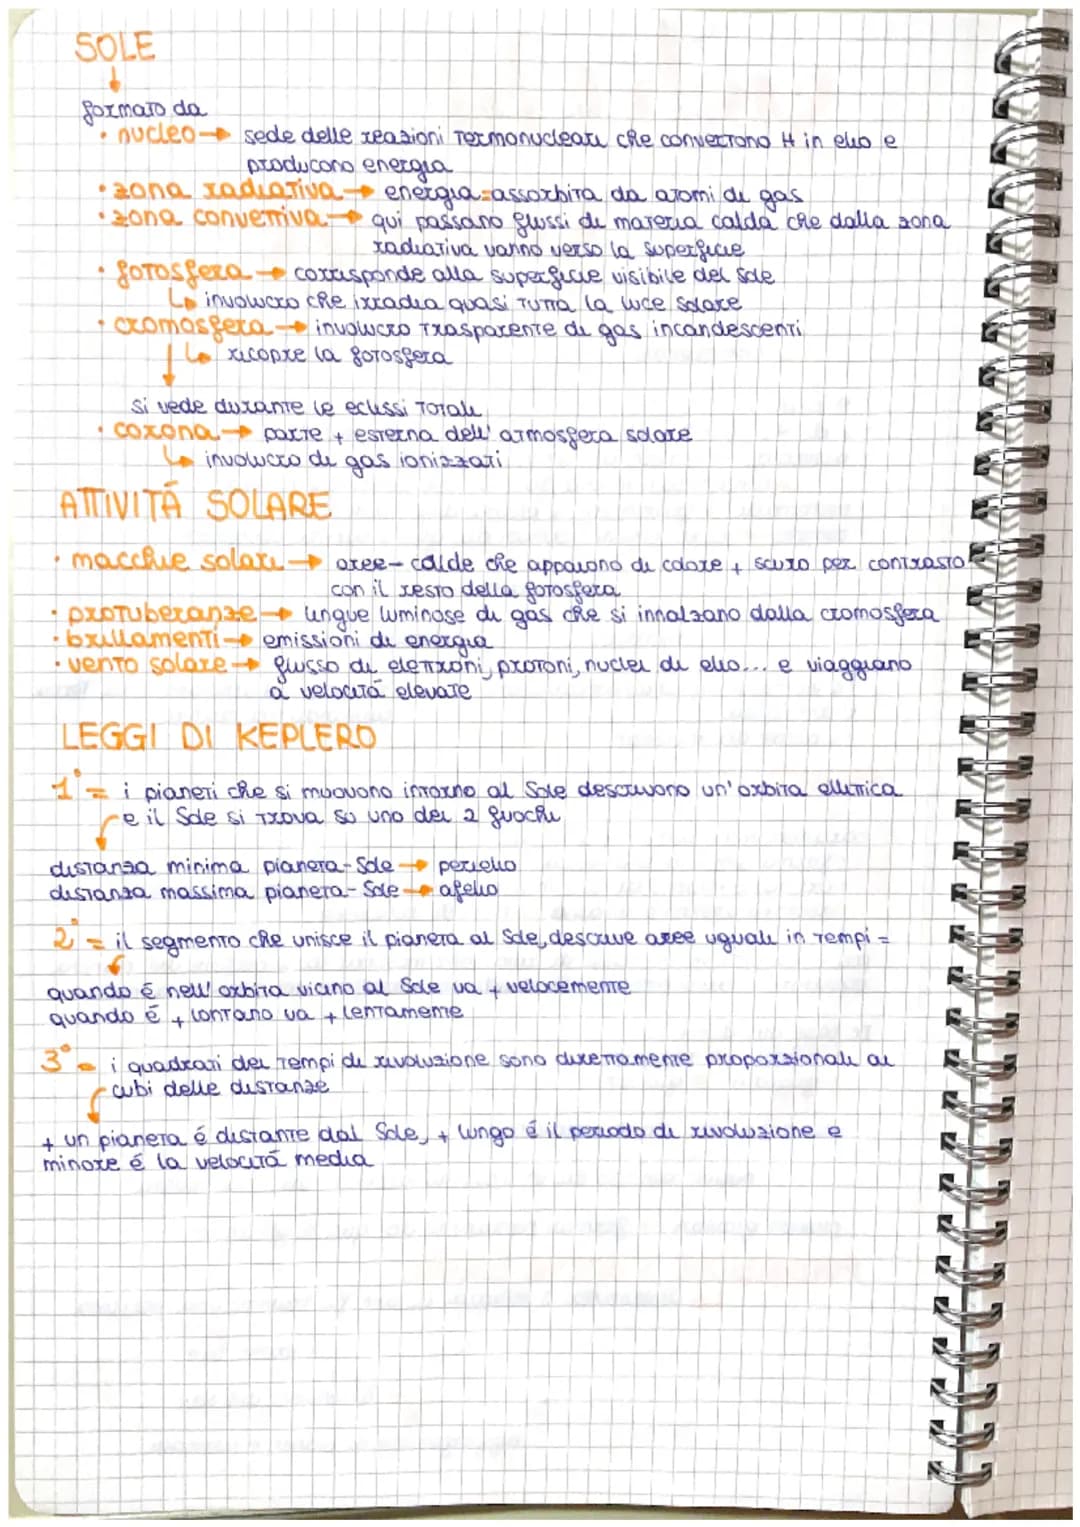 SOLE
↓
formato da
• nucleo → sede delle reazioni termonucleari che convertono H in elio e
producono energia
• zona radiativa → energia = assorbita da atomi di gas
• zona convettiva → qui passano flussi di materia calda che dalla zona
radiativa vanno verso la superficie
• fotosfera → corrisponde alla superficie visibile del Sole
↳ involucro che irradia quasi tutta la luce solare
• cromosfera → involucro trasparente di gas incandescenti
↳ ricopre la fotosfera
↓
si vede durante le eclissi totali
• corona → parte + esterna dell'atmosfera solare
↳ involucro di gas ionizzati
ATTIVITÁ SOLARE
• macchie solari → aree - calde che appaiono di colore + scuro per contrasto
con il resto della fotosfera
• protuberanze → lingue luminose di gas che si innalzano dalla cromosfera
• brillamenti → emissioni di energia
• vento solare → flusso di elettroni, protoni, nuclei di elio... e viaggiano
a velocitá elevate
LEGGI DI KEPLERO
1° = i pianeti che si muovono intorno al Sole descrivono un'orbita ellittica
e il Sole si trova su uno dei 2 fuochi
distanza minima pianeta-Sole → perielio
distanza massima pianeta-Sole → afelio
2° = il segmento che unisce il pianeta al Sole, descrive aree uguali in tempi =
quando é nell'orbita vicino al Sole va + velocemente
quando é + lontano va + lentamente
3° = i quadrati dei tempi di rivoluzione sono direttamente proporzionali ai
cubi delle distanze
+ un pianeta é distante dal Sole, + lungo é il periodo di rivoluzione e
minore é la velocitá media